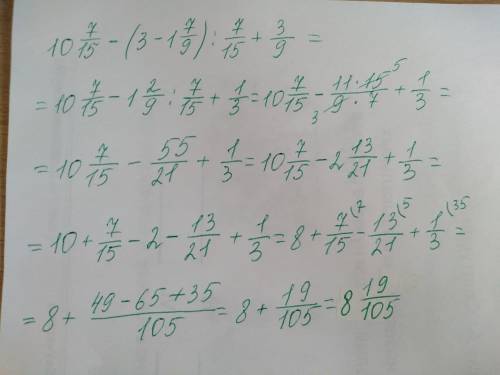 10 7/15 - (3 - 1 7/9) : 7/15 + 3/9 =
= 10 7/15 - 1 2/9 : 7/15 + 1/3 = 10 7/15 - 11 · 15 5/9 3 · 7 + 1/3 =
= 10 7/15 - 55/21 + 1/3 = 10 7/15 - 2 13/21 + 1/3 =
= 10 + 7/15 - 2 - 13/21 + 1/3 = 8 + 7/15 (7 - 13/21 (5 + 1/3 (35 =
= 8 + 49 - 65 + 35/105 = 8 + 19/105 = 8 19/105